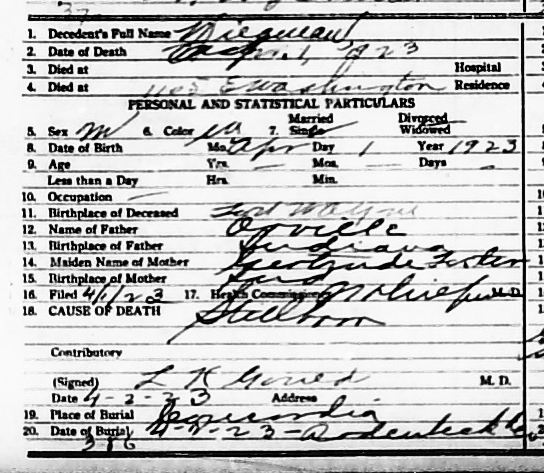 37
1. Decedent's Full Name
2. Date of Death Apr. 1, 1923
3. Died at Hospital
4. Died at 1105 E Washington Residence
PERSONAL AND STATISTICAL PARTICULARS
5. Sex M 6. Color W 7. Married Single Divorced Widowed
8. Date of Birth Mo. Apr Day 1 Year 1923
9. Age Yrs. — Mos. — Days —
Less than a Day Hrs. Min.
10. Occupation —
11. Birthplace of Deceased Fort Wayne
12. Name of Father Orville
13. Birthplace of Father Indiana
14. Maiden Name of Mother Gertrude
15. Birthplace of Mother Ind
16. Filed 4/1/23 17. Health Commissioner M.D.
18. CAUSE OF DEATH Stillborn
Contributory
(Signed) L K Gould M. D.
Date 4-2-23 Address
19. Place of Burial Concordia
20. Date of Burial 4-2-23-
386